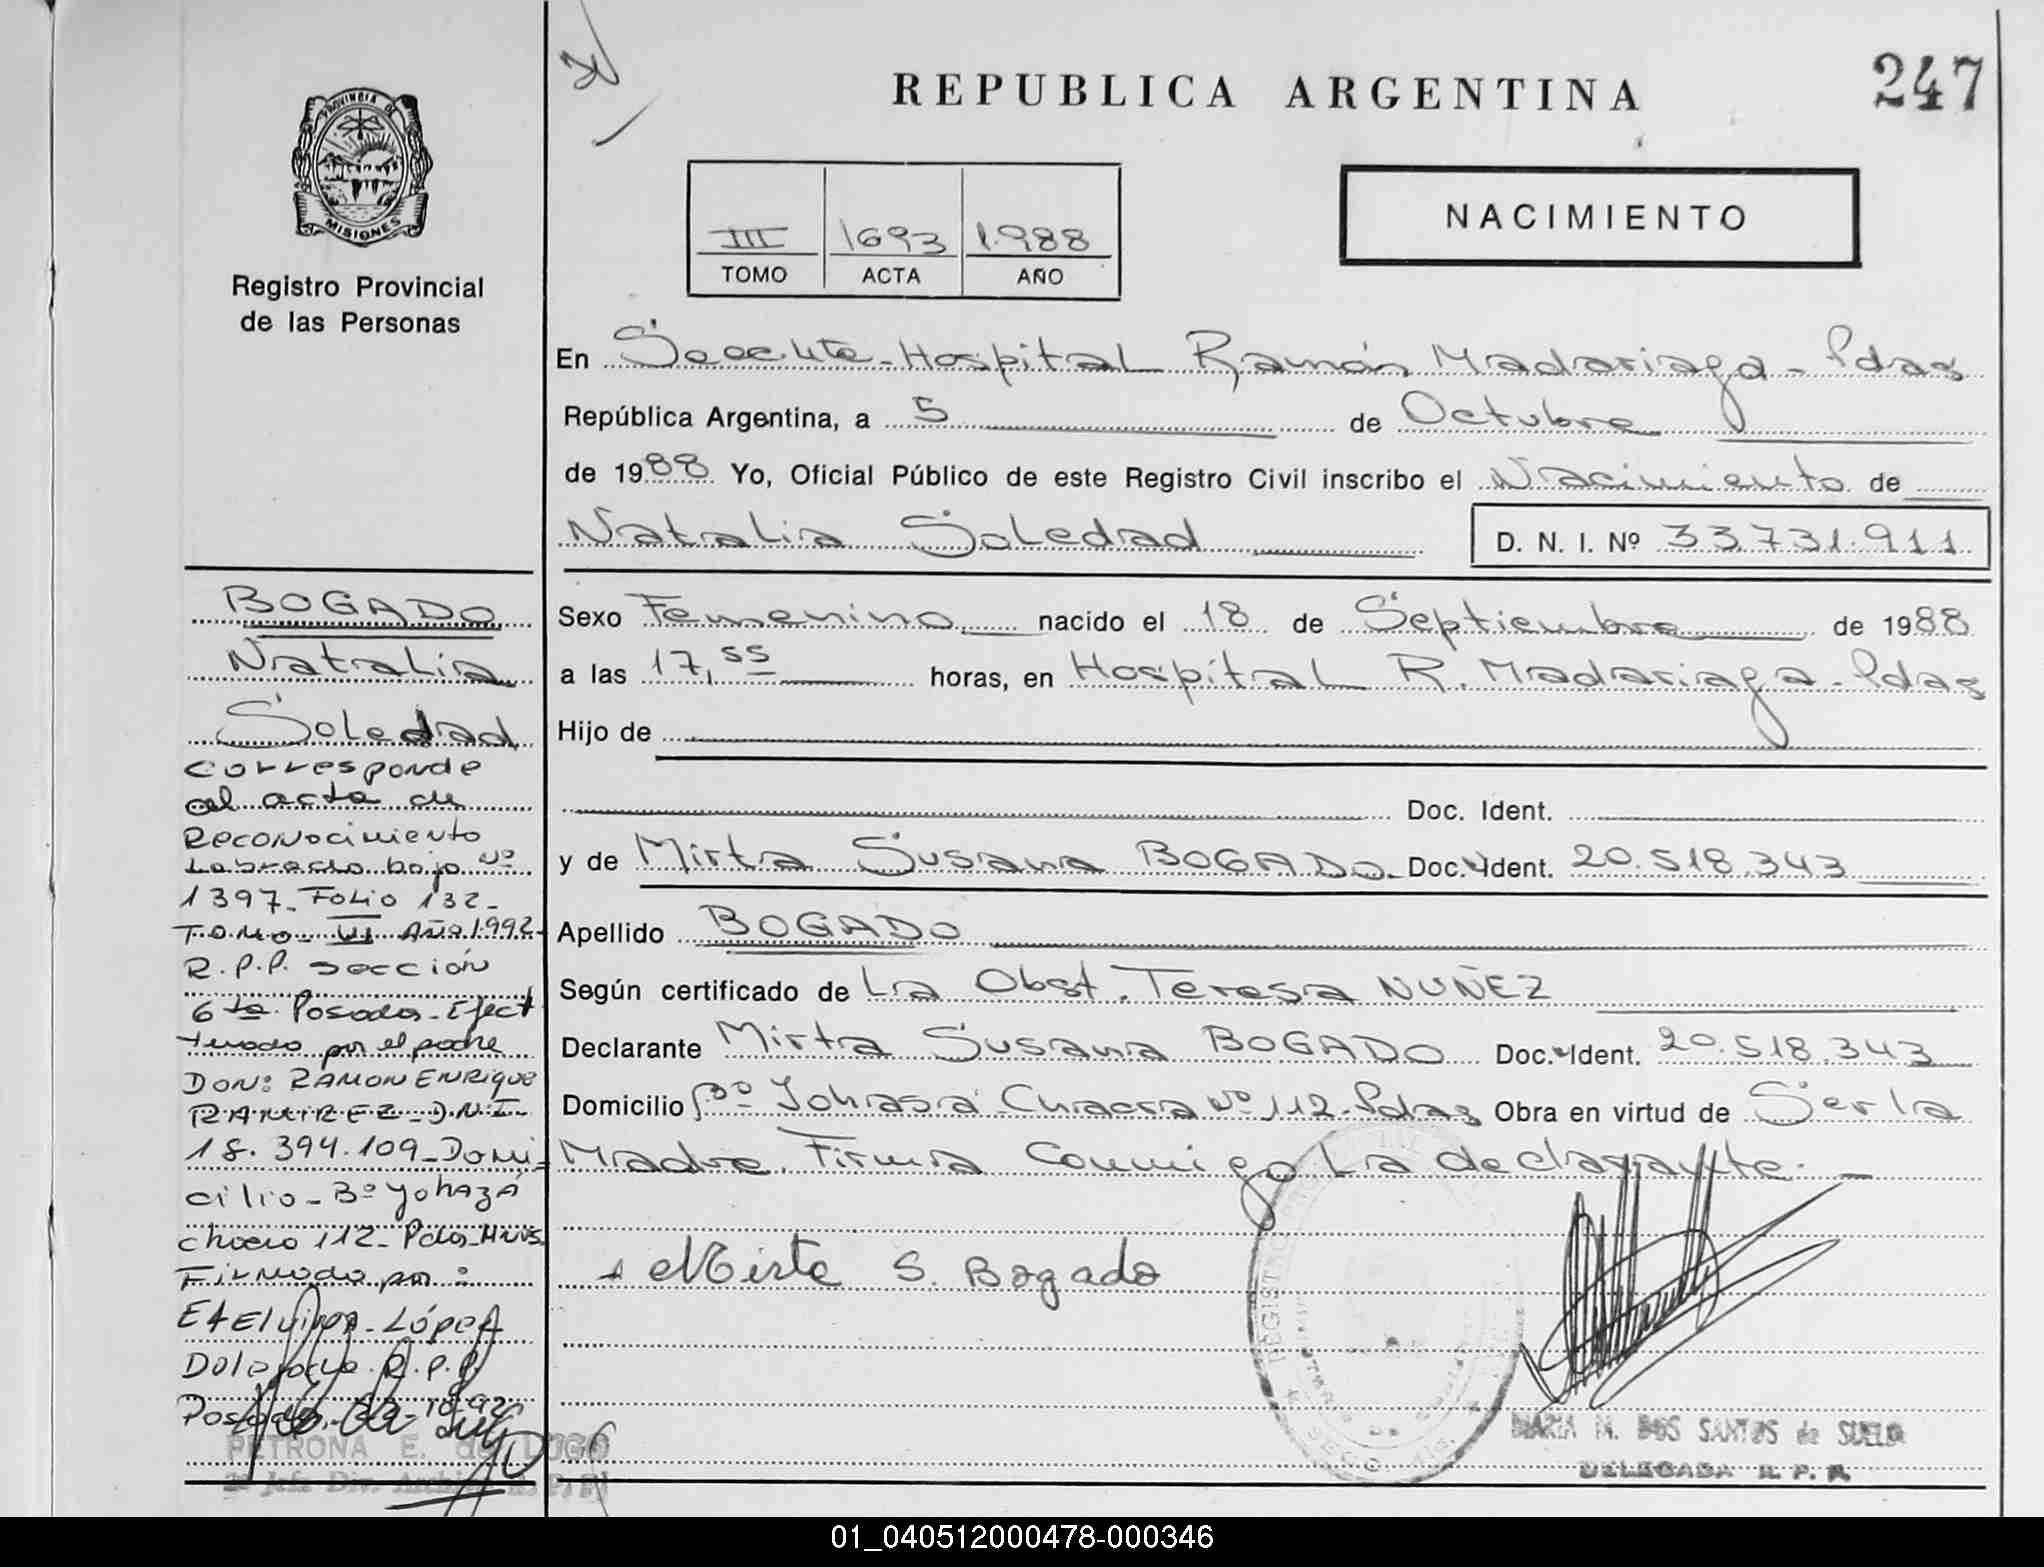 247
REPUBLICA ARGENTINA
PROVINCIA DE
MISIONES
Registro Provincial
de las Personas
NACIMIENTO
III 1693 1.988
TOMO ACTA AÑO
En Secc. 4ta - Hospital Ramón Madariaga - Pdas
República Argentina, a 5 de Octubre
de 1988 Yo, Oficial Público de este Registro Civil inscribo el Nacimiento de
Natalia Soledad D. N. I. Nº 33.731.911
Sexo Femenino nacido el 18 de Septiembre de 1988
a las 17,55 horas, en Hospital R. Madariaga - Pdas
Hijo de
Doc. Ident.
y de Mirta Susana BOGADO - Doc. Ident. 20.518.343
Apellido BOGADO
Según certificado de La Obst. Teresa NUÑEZ
Declarante Mirta Susana BOGADO Doc. Ident. 20.518.343
Domicilio Bº Yohasá - Chacra Nº 112 - Pdas Obra en virtud de Ser la
Madre. Firma Conmigo La declarante. -
Mirta S. Bogado
MARIA M. DOS SANTOS de SUELD
DELEGADA R. P. P.
BOGADO
Natalia
Soledad
Corresponde
al acta de
Reconocimiento
Labrado bajo Nº
1397 - Folio 132 -
Tomo - VI Año 1992 -
R.P.P. sección
6ta Posadas - Efect
tuado por el padre
DON: RAMON ENRIQUE
RAMIREZ - D.N.I.
18.394.109 - Domi-
cilio - Bº Yohazá
chacra 112 - Pdas - Mnes.
Firmado por:
Etelvina - López
Delegada R.P.P.
Posadas, -10-92
PETRONA E. de LUGO
2º Jefe Div. Archivo R. P. P.
01_040512000478-000346